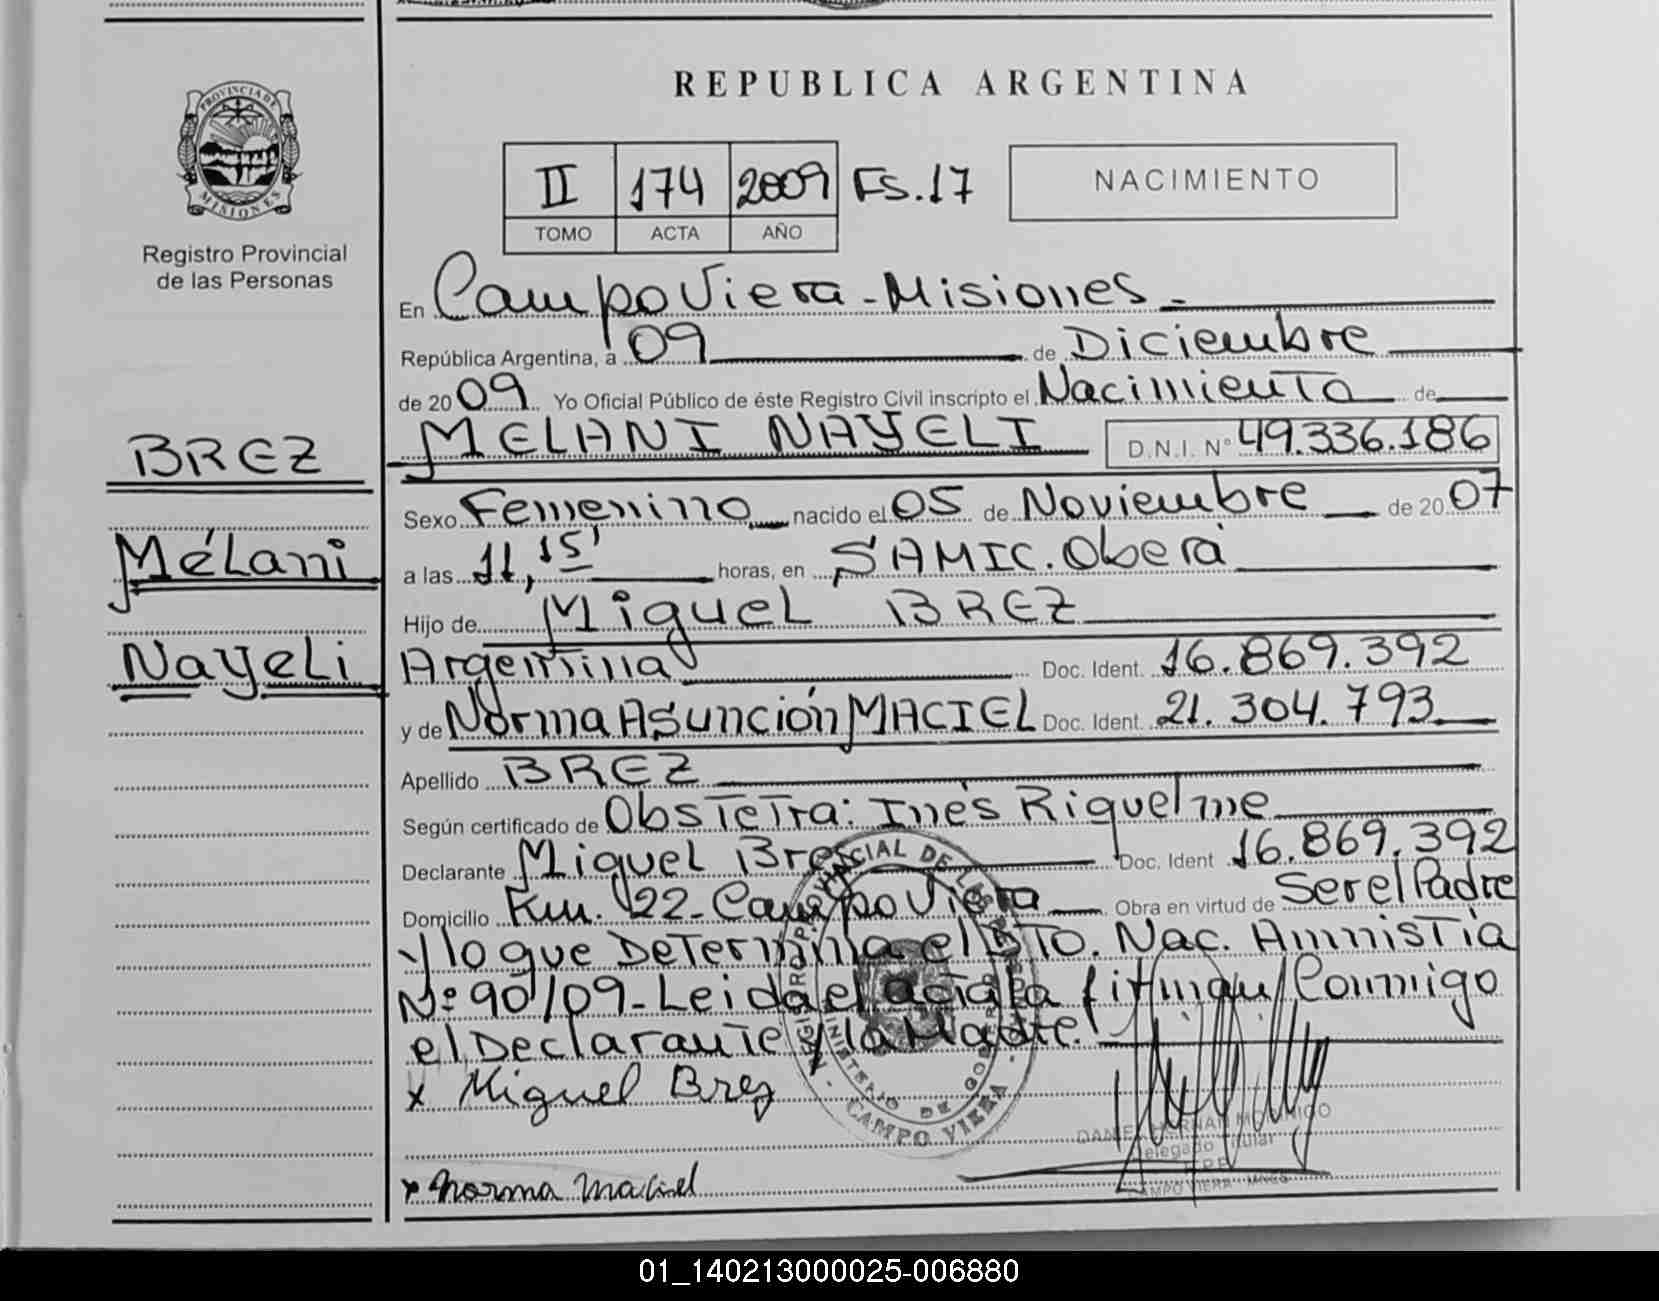 REPUBLICA ARGENTINA
PROVINCIA DE
MISIONES
Registro Provincial
de las Personas
II 174 2009 FS.17
TOMO ACTA AÑO
NACIMIENTO
En Campo Viera - Misiones -
República Argentina, a 09 de Diciembre
de 2009 Yo Oficial Público de éste Registro Civil inscripto el Nacimiento de
MELANI NAYELI D.N.I. Nº 49.336.186
BREZ
Mélani
Nayeli
Sexo Femenino nacido el 05 de Noviembre de 2007
a las 11,15' horas, en SAMIC. Oberá
Hijo de Miguel BREZ
Argentina Doc. Ident. 16.869.392
y de Norma Asunción MACIEL Doc. Ident. 21.304.793
Apellido BREZ
Según certificado de Obstetra: Inés Riquelme
Declarante Miguel Brez Doc. Ident 16.869.392
Domicilio Km. 22 - Campo Viera Obra en virtud de Ser el Padre
y lo que Determina el DTO. Nac. Amnistía
Nº 90/09 - Leida el acta la firman Conmigo
el Declarante y la Madre.
x Miguel Brez
x Norma Maciel
REGISTRO PROVINCIAL DE LAS
MINISTERIO DE GOB
CAMPO VIERA
Titular
CAMPO VIERA - MNES
01_140213000025-006880